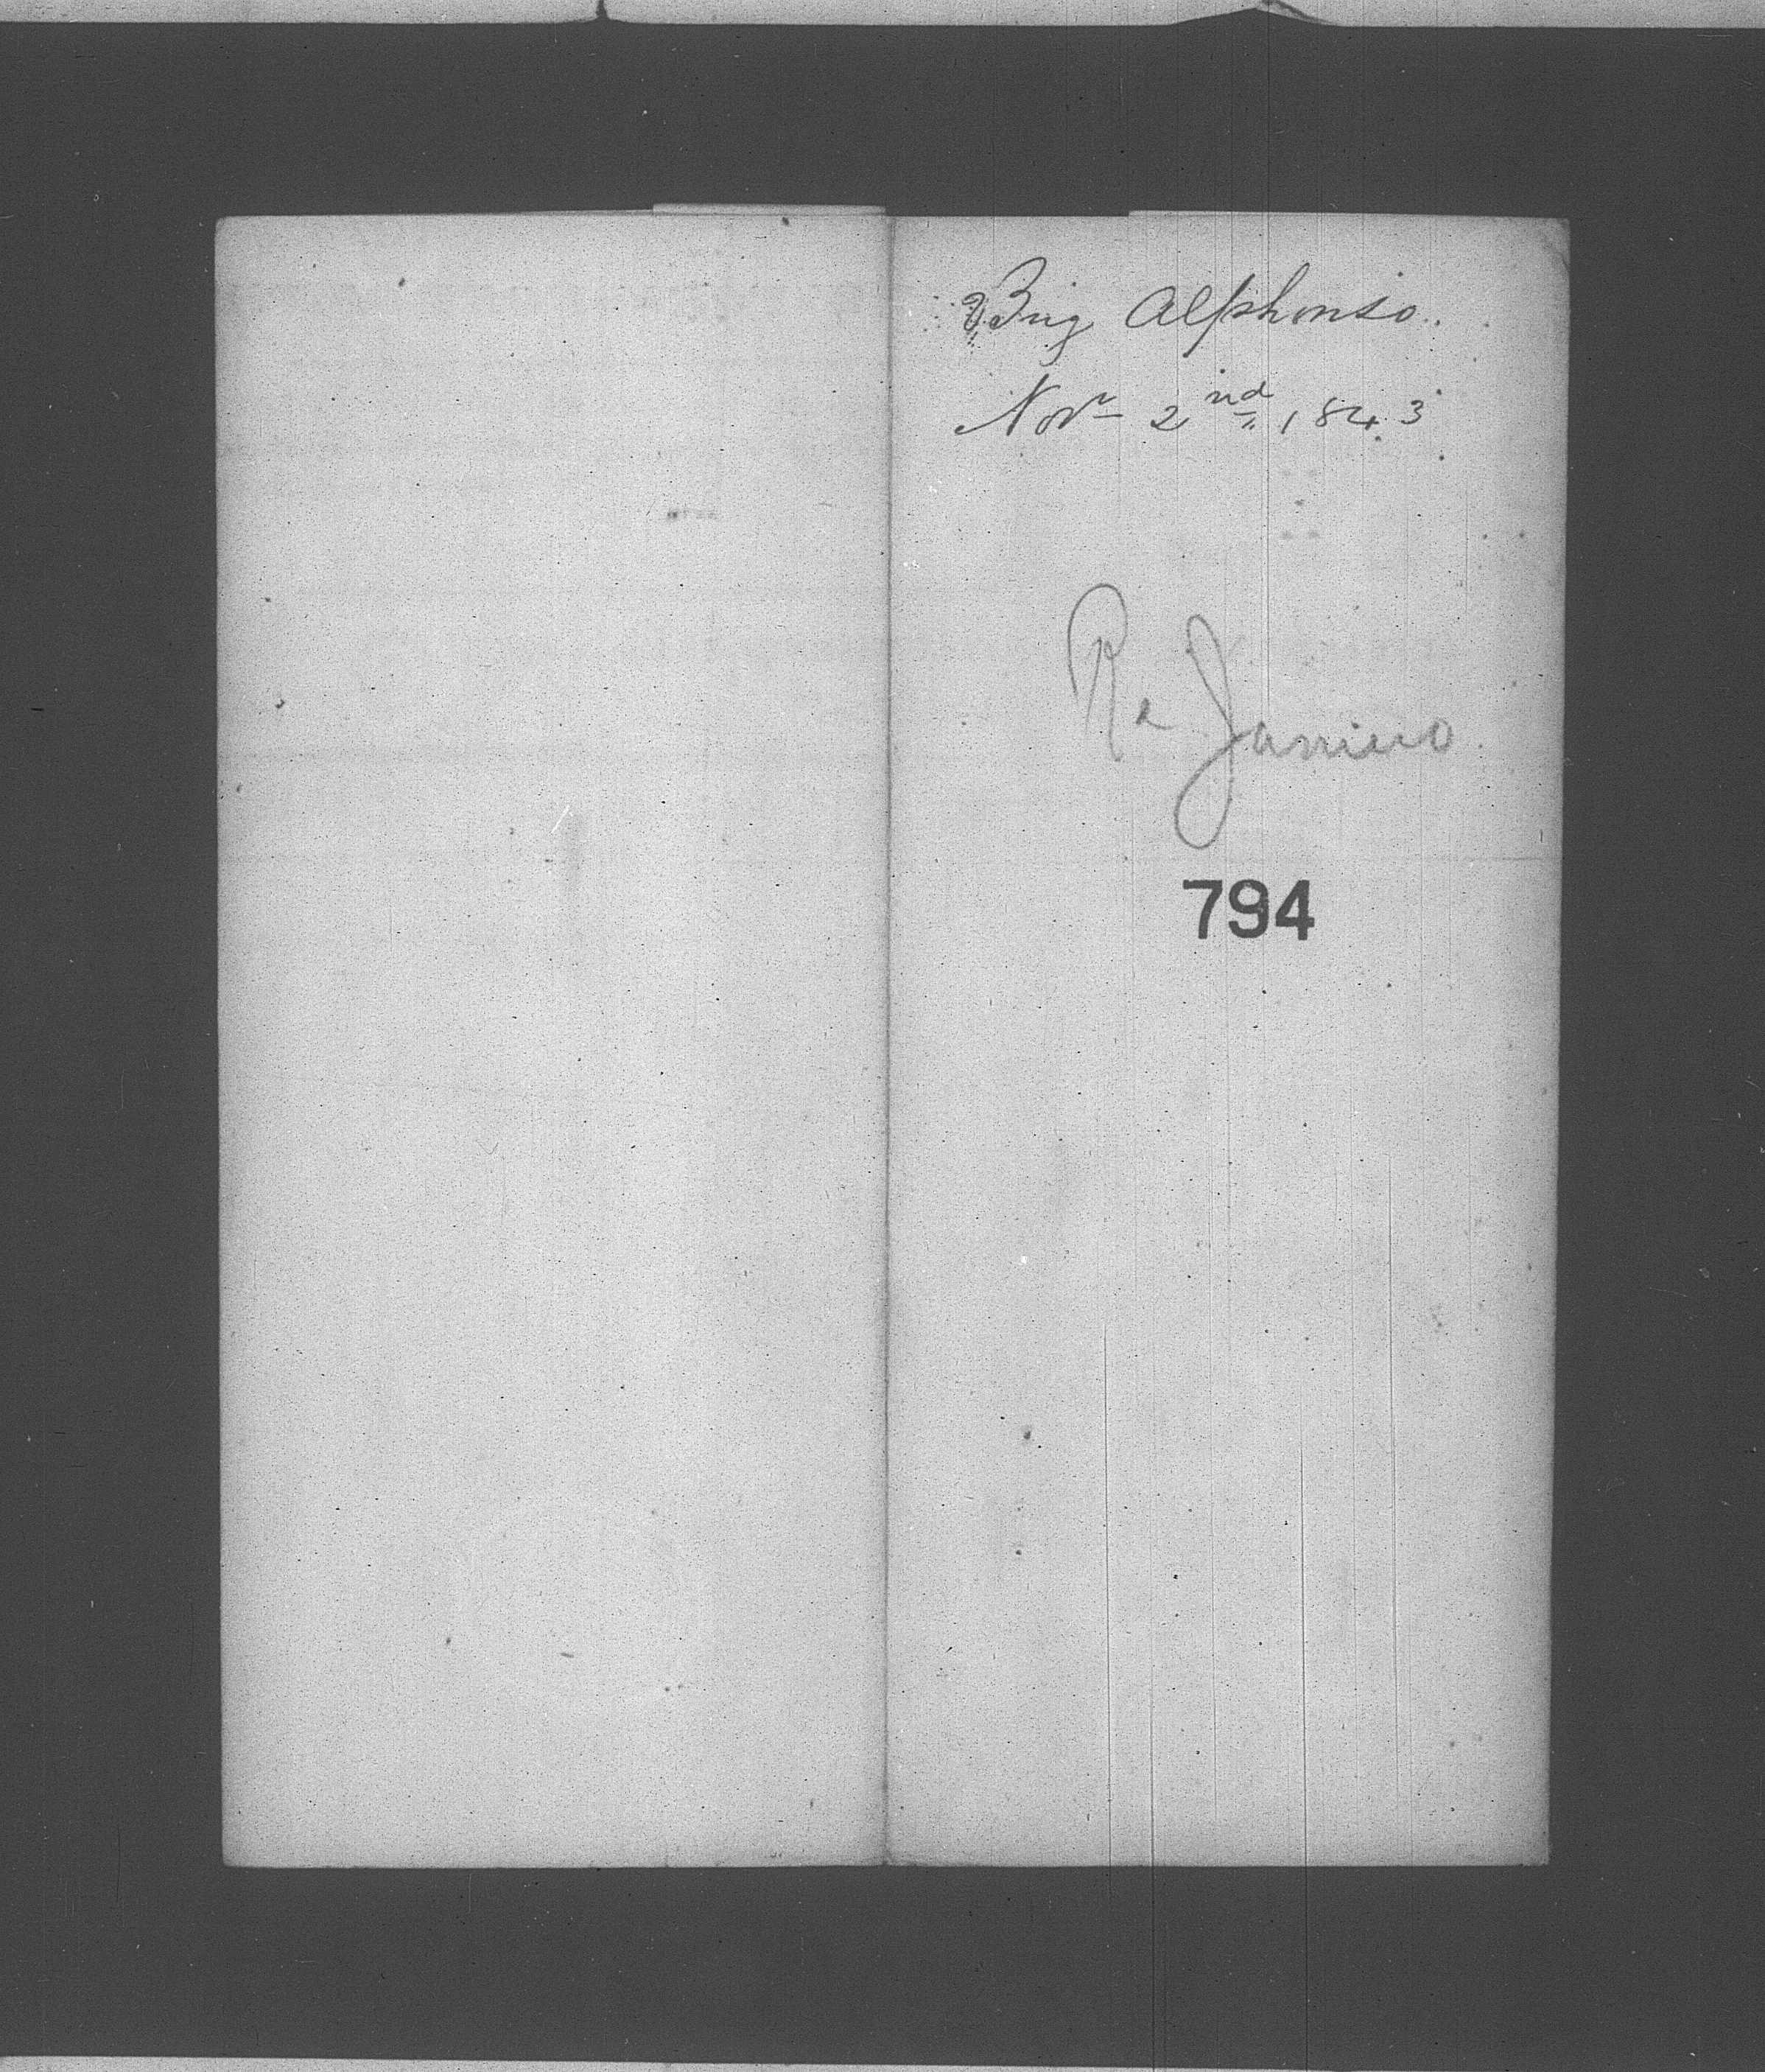 Brig Alphonso.
Novr 2nd 1843
Re Janiero
794